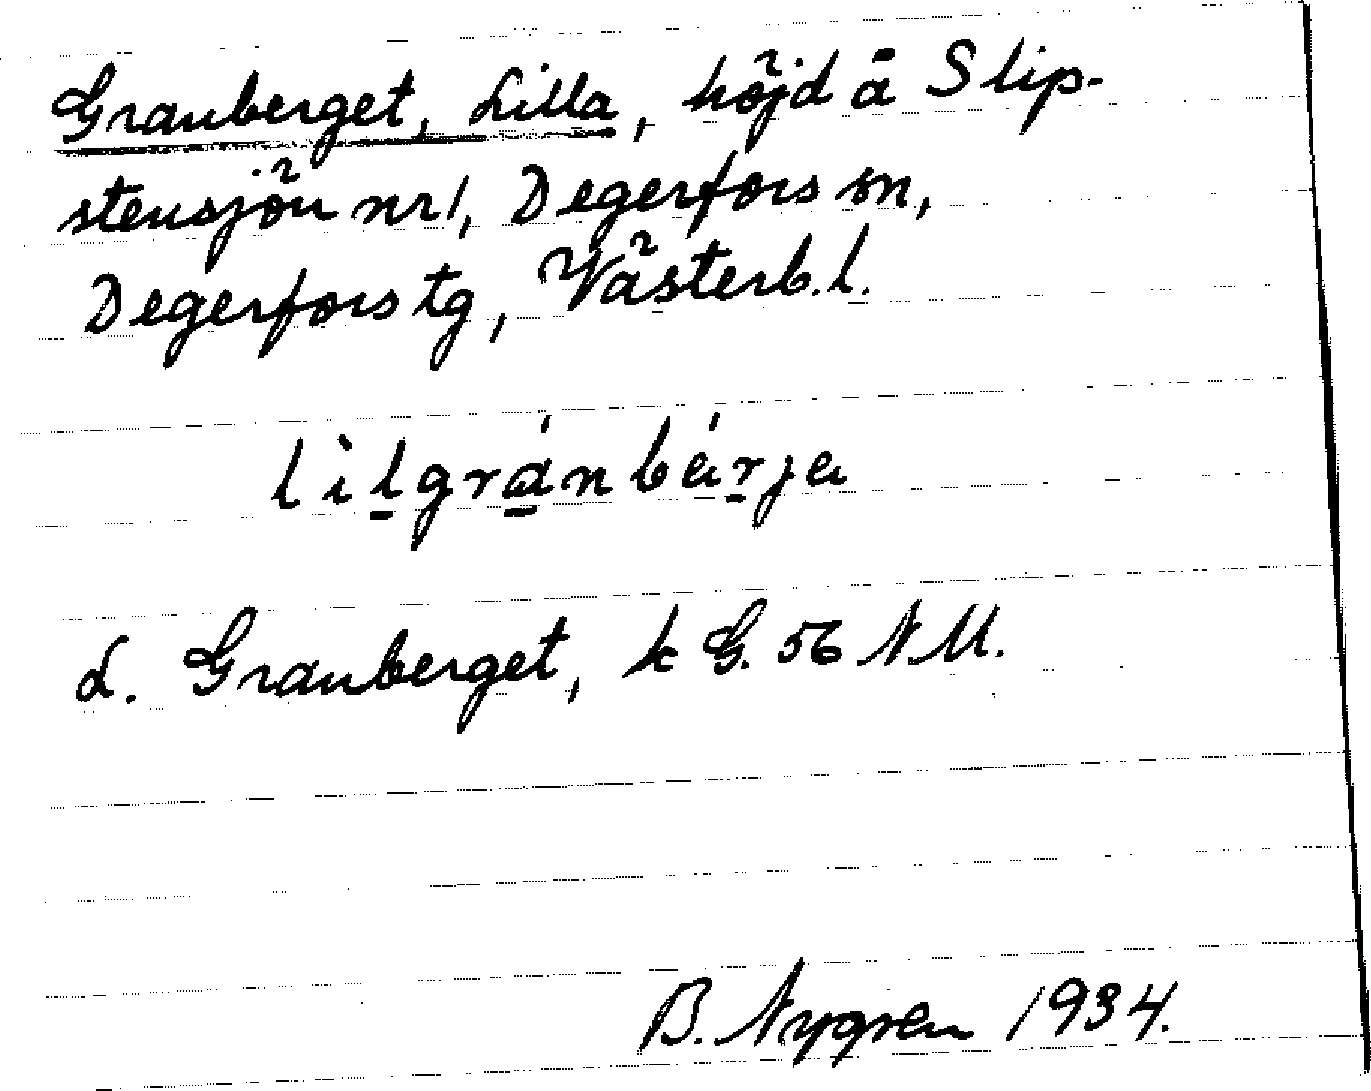 Granberget, Lilla, höjd å Slip-
stensjön nr 1, Degerfors sn,
Degerfors tg, Västerb. l.
lìlgránbárja
L. Granberget, k G. 56 NM.
B. Nygren 1934.